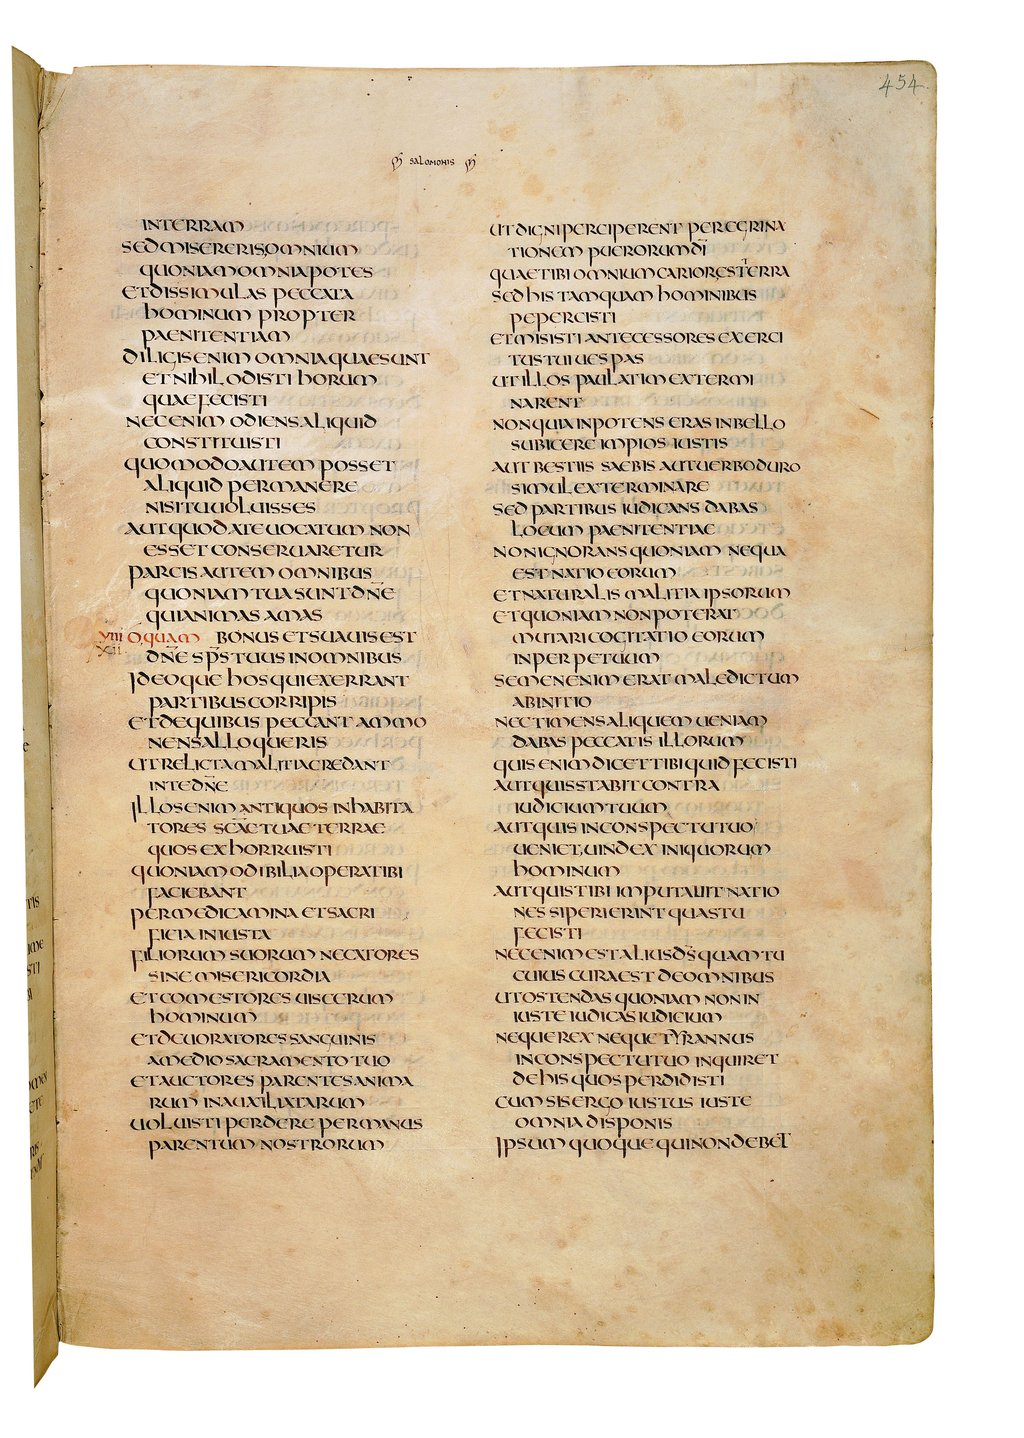 454
SALOMONIS
INTERRAM
SEDMISERERISOMNIUM
QUONIAMOMNIAPOTES
ETDISSIMULAS PECCATA
HOMINUM PROPTER
PAENITENTIAM
DILIGISENIM OMNIAQUAESUNT
ETNIHIL ODISTI HORUM
QUAEFECISTI
NECENIM ODIENSALIQUID
CONSTITUISTI
QUOMODOAUTEM POSSET
ALIQUID PERMANERE
NISITUUOLUISSES
AUTQUODATEUOCATUM NON
ESSET CONSERUARETUR
PARCISAUTEM OMNIBUS
QUONIAMTUASUNTDNE
QUIANIMAS AMAS
VIII O QUAM BONUS ETSUAUISEST
XII DNE SPS TUUS INOMNIBUS
IDEOQUE HOSQUIEXERRANT
PARTIBUSCORRIPIS
ETDEQUIBUS PECCANT AMMO
NENSALLOQUERIS
UTRELICTAMALITIACREDANT
INTEDNE
ILLOSENIM ANTIQUOS INHABITA
TORES SCAETUAETERRAE
QUOS EXHORRUISTI
QUONIAMODIBILIAOPERATIBI
FACIEBANT
PERMEDICAMINA ETSACRI
FICIA INIUSTA
FILIORUM SUORUM NECATORES
SINE MISERICORDIA
ETCOMESTORES UISCERUM
HOMINUM
ETDEUORATORES SANGUINIS
AMEDIO SACRAMENTO TUO
ETAUCTORES PARENTES ANIMA
RUM INAUXILIATARUM
UOLUISTI PERDERE PERMANUS
PARENTUM NOSTRORUM
UTDIGNIPERCIPERENT PEREGRINA
TIONEM PUERORUMDI
QUAETIBI OMNIUMCARIORESTERRA
SEDHIS TAMQUAM HOMINIBUS
PEPERCISTI
ETMISISTI ANTECESSORES EXERCI
TUSTUI UESPAS
UTILLOS PAULATIM EXTERMI
NARENT
NONQUIAINPOTENS ERAS INBELLO
SUBICERE IMPIOS IUSTIS
AUT BESTIIS SAEBIS AUTUERBODURO
SIMUL EXTERMINARE
SED PARTIBUS IUDICANS DABAS
LOCUM PAENITENTIAE
NONIGNORANS QUONIAM NEQUA
EST NATIO EORUM
ETNATURALIS MALITIA IPSORUM
ETQUONIAM NONPOTERAT
MUTARI COGITATIO EORUM
INPERPETUUM
SEMENENIM ERAT MALEDICTUM
ABINITIO
NECTIMENSALIQUEM UENIAM
DABAS PECCATIS ILLORUM
QUIS ENIM DICETTIBIQUIDFECISTI
AUTQUISSTABIT CONTRA
IUDICIUMTUUM
AUTQUIS INCONSPECTUTUO
UENIET,UINDEX INIQUORUM
HOMINUM
AUTQUISTIBI IMPUTAUIT NATIO
NES SIPERIERINT QUASTU
FECISTI
NECENIM ESTALIUSDS QUAM TU
CUIUS CURAEST DEOMNIBUS
UTOSTENDAS QUONIAM NONIN
IUSTE IUDICAS IUDICIUM
NEQUEREX NEQUETYRANNUS
INCONSPECTUTUO INQUIRET
DEHIS QUOS PERDIDISTI
CUM SISERGO IUSTUS IUSTE
OMNIA DISPONIS
IPSUM QUOQUE QUINONDEBET